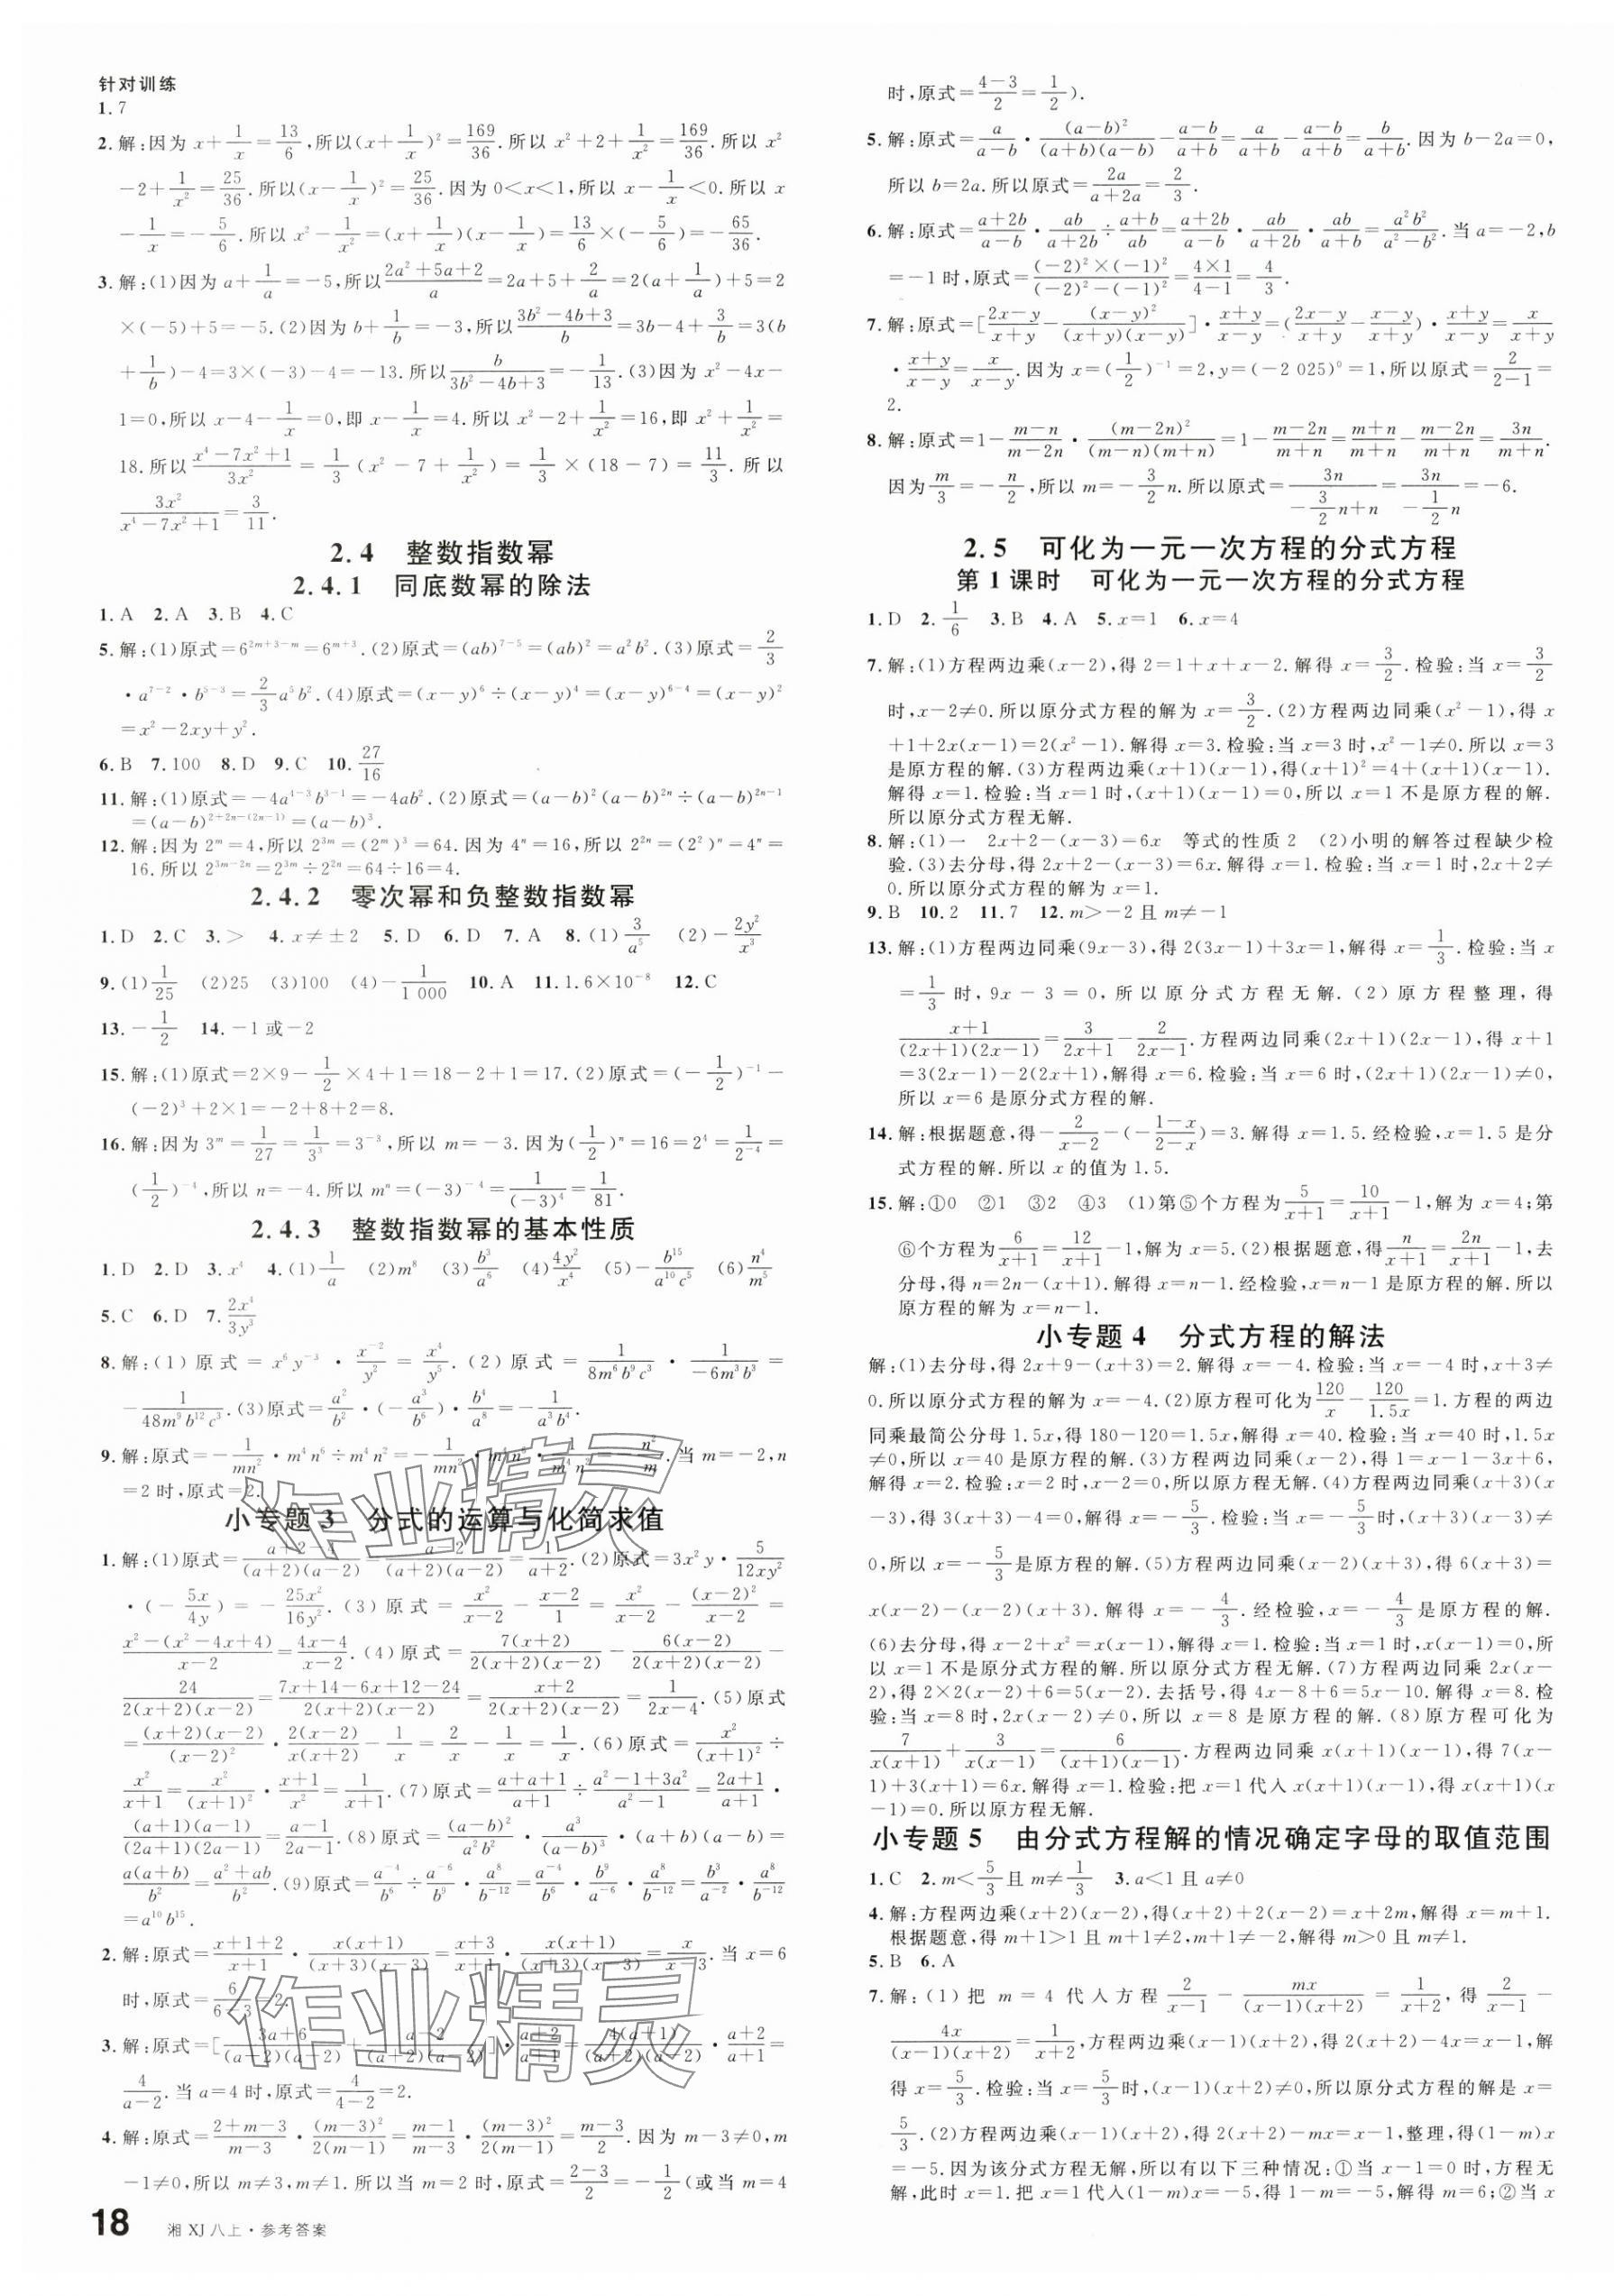 针对训练
1.7
2.解:因为x+1/x=13/6,所以(x+1/x)²=169/36.所以x²+2+1/x²=169/36.所以x²
-2+1/x²=25/36.所以(x-1/x)²=25/36.因为0<x<1,所以x-1/x<0.所以x
-1/x=-5/6.所以x²-1/x²=(x+1/x)(x-1/x)=13/6×(-5/6)=-65/36.
3.解:(1)因为a+1/a=-5,所以(2a²+5a+2)/a=2a+5+2/a=2(a+1/a)+5=2
×(-5)+5=-5.(2)因为b+1/b=-3,所以(3b²-4b+3)/b=3b-4+3/b=3(b
+1/b)-4=3×(-3)-4=-13.所以b/(3b²-4b+3)=-1/13.(3)因为x²-4x-
1=0,所以x-4-1/x=0,即x-1/x=4.所以x²-2+1/x²=16,即x²+1/x²=
18.所以(x⁴-7x²+1)/3x²=1/3(x²-7+1/x²)=1/3×(18-7)=11/3.所以
3x²/(x⁴-7x²+1)=3/11.
2.4 整数指数幂
2.4.1 同底数幂的除法
1.A 2.A 3.B 4.C
5.解:(1)原式=6^(2m+3-m)=6^(m+3).(2)原式=(ab)^(7-5)=(ab)²=a²b².(3)原式=2/3
·a^(7-2)·b^(5-3)=2/3a⁵b².(4)原式=(x-y)⁶÷(x-y)⁴=(x-y)^(6-4)=(x-y)²
=x²-2xy+y².
6.B 7.100 8.D 9.C 10.27/16
11.解:(1)原式=-4a^(1-3)b^(3-1)=-4ab².(2)原式=(a-b)²(a-b)^(2n)÷(a-b)^(2n-1)
=(a-b)^(2+2n-(2n-1))=(a-b)³.
12.解:因为2^m=4,所以2^(3m)=(2^m)³=64.因为4^n=16,所以2^(2n)=(2²)^n=4^n=
16.所以2^(3m-2n)=2^(3m)÷2^(2n)=64÷16=4.
2.4.2 零次幂和负整数指数幂
1.D 2.C 3.> 4.x≠±2 5.D 6.D 7.A 8.(1)3/a⁵ (2)-2y²/x³
9.(1)1/25 (2)25 (3)100 (4)-1/1 000 10.A 11.1.6×10⁻⁸ 12.C
13.-1/2 14.-1或-2
15.解:(1)原式=2×9-1/2×4+1=18-2+1=17.(2)原式=(-1/2)⁻¹-
(-2)³+2×1=-2+8+2=8.
16.解:因为3^m=1/27=1/3³=3⁻³,所以m=-3.因为(1/2)^n=16=2⁴=1/2⁻⁴=
(1/2)⁻⁴,所以n=-4.所以m^n=(-3)⁻⁴=1/(-3)⁴=1/81.
2.4.3 整数指数幂的基本性质
1.D 2.D 3.x⁴ 4.(1)1/a (2)m⁸ (3)b³/a⁶ (4)4y²/x⁴ (5)-b¹⁵/a¹⁰c⁵ (6)n⁴/m⁵
5.C 6.D 7.2x⁴/3y³
8.解:(1)原式=x⁶y⁻³·x⁻²/y²=x⁴/y⁵.(2)原式=1/8m⁶b⁹c³·1/-6m³b³=
-1/48m⁹b¹²c³.(3)原式=a²/b²·(-a³/b⁶)·b⁴/a⁸=-1/a³b⁴.
9.解:原式=-1/mn²·m⁴n⁶÷m⁴n²=-1/mn²·m⁴n⁶·1/m⁴n²=-n²/m.当m=-2,n
=2时,原式=2.
小专题3 分式的运算与化简求值
1.解:(1)原式=(a+2-4)/(a+2)(a-2)=(a-2)/(a+2)(a-2)=1/(a+2).(2)原式=3x²y·5/12xy²
·(-5x/4y)=-25x²/16y².(3)原式=x²/(x-2)-(x-2)/1=x²/(x-2)-(x-2)²/(x-2)=
(x²-(x²-4x+4))/(x-2)=(4x-4)/(x-2).(4)原式=7(x+2)/2(x+2)(x-2)-6(x-2)/2(x+2)(x-2)-
24/2(x+2)(x-2)=(7x+14-6x+12-24)/2(x+2)(x-2)=(x+2)/2(x+2)(x-2)=1/(2x-4).(5)原式
=(x+2)(x-2)/(x-2)²·2(x-2)/x(x+2)-1/x=2/x-1/x=1/x.(6)原式=x²/(x+1)²÷
x²/(x+1)=x²/(x+1)²·(x+1)/x²=1/(x+1).(7)原式=(a+a+1)/(a+1)÷(a²-1+3a²)/(a²-1)=(2a+1)/(a+1)·
(a+1)(a-1)/(2a+1)(2a-1)=(a-1)/(2a-1).(8)原式=(a-b)²/a²b²·a³/(a-b)³·(a+b)(a-b)=
a(a+b)/b²=(a²+ab)/b².(9)原式=a⁻⁴/b⁶÷a⁻⁶/b⁹·a⁻⁸/b⁻¹²=a⁻⁴/b⁶·b⁹/a⁻⁶·a⁻⁸/b⁻¹²=b³/a⁻²·a⁻⁸/b⁻¹²
=a¹⁰b¹⁵.
2.解:原式=(x+1+2)/(x+1)·x(x+1)/(x+3)(x-3)=(x+3)/(x+1)·x(x+1)/(x+3)(x-3)=x/(x-3).当x=6
时,原式=6/(6-3)=2.
3.解:原式=[(3a+6)/(a-2)(a+2)+(a-2)/(a+2)(a-2)]·(a+2)/(a+1)=4(a+1)/(a+2)(a-2)·(a+2)/(a+1)=
4/(a-2).当a=4时,原式=4/(4-2)=2.
4.解:原式=(2+m-3)/(m-3)·(m-3)²/2(m-1)=(m-1)/(m-3)·(m-3)²/2(m-1)=(m-3)/2.因为m-3≠0,m
-1≠0,所以m≠3,m≠1.所以当m=2时,原式=(2-3)/2=-1/2(或当m=4
时,原式=(4-3)/2=1/2).
5.解:原式=a/(a-b)·(a-b)²/(a+b)(a-b)-(a-b)/(a+b)=a/(a+b)-(a-b)/(a+b)=b/(a+b).因为b-2a=0,
所以b=2a.所以原式=2a/(a+2a)=2/3.
6.解:原式=(a+2b)/(a-b)·ab/(a+2b)÷(a+b)/ab=(a+2b)/(a-b)·ab/(a+2b)·ab/(a+b)=a²b²/(a²-b²).当a=-2,b
=-1时,原式=(-2)²×(-1)²/((-2)²-(-1)²)=4×1/(4-1)=4/3.
7.解:原式=[(2x-y)/(x+y)-(x-y)²/(x+y)(x-y)]·(x+y)/(x-y)=((2x-y)/(x+y)-(x-y)/(x+y))·(x+y)/(x-y)=x/(x+y)
·(x+y)/(x-y)=x/(x-y).因为x=(1/2)⁻¹=2,y=(-2 025)⁰=1,所以原式=2/(2-1)=
2.
8.解:原式=1-(m-n)/(m-2n)·(m-2n)²/(m-n)(m+n)=1-(m-2n)/(m+n)=(m+n)/(m+n)-(m-2n)/(m+n)=3n/(m+n).
因为m/3=-n/2,所以m=-3/2n.所以原式=3n/(-3/2n+n)=3n/(-1/2n)=-6.
2.5 可化为一元一次方程的分式方程
第1课时 可化为一元一次方程的分式方程
1.D 2.1/6 3.B 4.A 5.x=1 6.x=4
7.解:(1)方程两边乘(x-2),得2=1+x+x-2.解得x=3/2.检验:当x=3/2
时,x-2≠0.所以原分式方程的解为x=3/2.(2)方程两边同乘(x²-1),得x
+1+2x(x-1)=2(x²-1).解得x=3.检验:当x=3时,x²-1≠0.所以x=3
是原方程的解.(3)方程两边乘(x+1)(x-1),得(x+1)²=4+(x+1)(x-1).
解得x=1.检验:当x=1时,(x+1)(x-1)=0,所以x=1不是原方程的解.
所以原分式方程无解.
8.解:(1)一 2x+2-(x-3)=6x 等式的性质2 (2)小明的解答过程缺少检
验.(3)去分母,得2x+2-(x-3)=6x.解得x=1.检验:当x=1时,2x+2≠
0.所以原分式方程的解为x=1.
9.B 10.2 11.7 12.m>-2且m≠-1
13.解:(1)方程两边同乘(9x-3),得2(3x-1)+3x=1,解得x=1/3.检验:当x
=1/3时,9x-3=0,所以原分式方程无解.(2)原方程整理,得
(x+1)/(2x+1)(2x-1)=3/(2x+1)-2/(2x-1).方程两边同乘(2x+1)(2x-1),得x+1
=3(2x-1)-2(2x+1),解得x=6.检验:当x=6时,(2x+1)(2x-1)≠0,
所以x=6是原分式方程的解.
14.解:根据题意,得-2/(x-2)-(-(1-x)/(2-x))=3.解得x=1.5.经检验,x=1.5是分
式方程的解.所以x的值为1.5.
15.解:①0 ②1 ③2 ④3 (1)第⑤个方程为5/(x+1)=10/(x+1)-1,解为x=4;第
⑥个方程为6/(x+1)=12/(x+1)-1,解为x=5.(2)根据题意,得n/(x+1)=2n/(x+1)-1,去
分母,得n=2n-(x+1).解得x=n-1.经检验,x=n-1是原方程的解.所以
原方程的解为x=n-1.
小专题4 分式方程的解法
解:(1)去分母,得2x+9-(x+3)=2.解得x=-4.检验:当x=-4时,x+3≠
0.所以原分式方程的解为x=-4.(2)原方程可化为120/x-120/1.5x=1.方程的两边
同乘最简公分母1.5x,得180-120=1.5x,解得x=40.检验:当x=40时,1.5x
≠0,所以x=40是原方程的解.(3)方程两边同乘(x-2),得1=x-1-3x+6,
解得x=2.检验:x=2时,x-2=0,所以原方程无解.(4)方程两边同乘(x+3)(x
-3),得3(x+3)-4=0,解得x=-5/3.检验:当x=-5/3时,(x+3)(x-3)≠
0,所以x=-5/3是原方程的解.(5)方程两边同乘(x-2)(x+3),得6(x+3)=
x(x-2)-(x-2)(x+3).解得x=-4/3.经检验,x=-4/3是原方程的解.
(6)去分母,得x-2+x²=x(x-1),解得x=1.检验:当x=1时,x(x-1)=0,所
以x=1不是原分式方程的解.所以原分式方程无解.(7)方程两边同乘2x(x-
2),得2×2(x-2)+6=5(x-2).去括号,得4x-8+6=5x-10.解得x=8.检
验:当x=8时,2x(x-2)≠0,所以x=8是原方程的解.(8)原方程可化为
7/x(x+1)+3/x(x-1)=6/(x+1)(x-1).方程两边同乘x(x+1)(x-1),得7(x-
1)+3(x+1)=6x.解得x=1.检验:把x=1代入x(x+1)(x-1),得x(x+1)(x
-1)=0.所以原方程无解.
小专题5 由分式方程解的情况确定字母的取值范围
1.C 2.m<5/3且m≠1/3 3.a<1且a≠0
4.解:方程两边乘(x+2)(x-2),得(x+2)+2(x-2)=x+2m,解得x=m+1.
根据题意,得m+1>1且m+1≠2,m+1≠-2,解得m>0且m≠1.
5.B 6.A
7.解:(1)把m=4代入方程2/(x-1)-mx/(x-1)(x+2)=1/(x+2),得2/(x-1)-
4x/(x-1)(x+2)=1/(x+2),方程两边乘(x-1)(x+2),得2(x+2)-4x=x-1,解
得x=5/3.检验:当x=5/3时,(x-1)(x+2)≠0,所以原分式方程的解是x=
5/3.(2)方程两边乘(x-1)(x+2),得2(x+2)-mx=x-1,整理,得(1-m)x
=-5.因为该分式方程无解,所以有以下三种情况:①当x-1=0时,方程无
解,此时x=1.把x=1代入(1-m)x=-5,得1-m=-5,解得m=6;②当x
18 湘XJ八上·参考答案
作业精灵
作业精灵